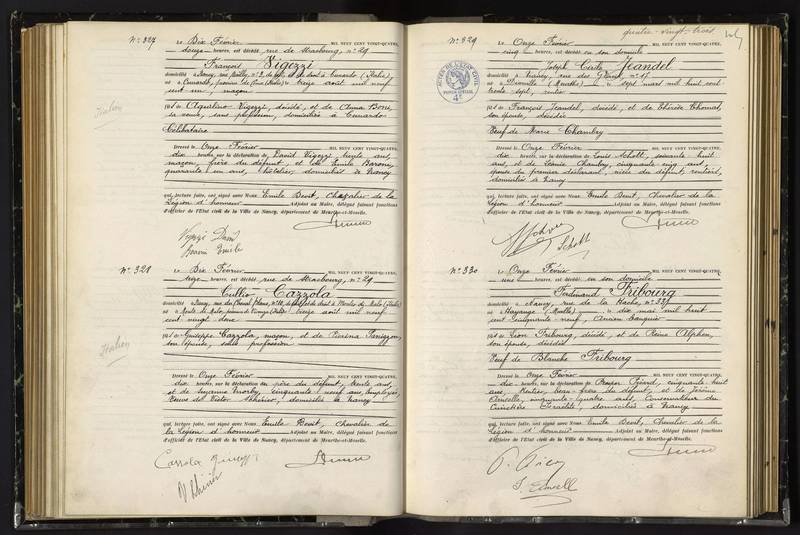 N° 327
Le Dix Février MIL NEUF CENT VINGT-QUATRE,
douze heures, est décédé, rue de Strasbourg, n° 29
François Vigezzi
domicilié à Nancy,
né à Cunardo, treize août mil neuf
cent un, maçon
fils de Aquilino Vigezzi, décédé, et de Anna Boni,
sa veuve, sans profession, domiciliée à Cunardo
Célibataire
Dressé le Onze Février MIL NEUF CENT VINGT-QUATRE,
dix heures, sur la déclaration de David Vigezzi, trente ans,
maçon, frère du défunt, et de Emile
quarante un ans, domiciliés à Nancy
qui, lecture faite, ont signé avec Nous Emile Devit, Chevalier de la
Légion d'honneur Adjoint au Maire, délégué faisant fonctions
d'officier de l'Etat civil de la Ville de Nancy, département de Meurthe-et-Moselle.
Italien
N° 328
Le Dix Février MIL NEUF CENT VINGT-QUATRE,
treize heures, est décédé, rue de Strasbourg, n° 29
Tullio Cazzola
domicilié à Nancy,
né à treize août mil neuf
cent vingt
fils de Guiseppe Cazzola, maçon, et de
son épouse, sans profession
Dressé le Onze Février MIL NEUF CENT VINGT-QUATRE,
dix heures, sur la déclaration du père du défunt, trente ans,
et de Suzanne cinquante neuf ans, Employée,
Veuve de Victor Thirier, domiciliés à Nancy
qui, lecture faite, ont signé avec Nous Emile Devit, Chevalier de
la Légion d'honneur Adjoint au Maire, délégué faisant fonctions
d'officier de l'Etat civil de la Ville de Nancy, département de Meurthe-et-Moselle.
Italien
quatre-vingt-trois
N° 329
Le Onze Février MIL NEUF CENT VINGT-QUATRE,
cinq heures, est décédé en son domicile
Joseph Jeandel
domicilié à Nancy, rue des
né à (Meurthe) sept mars mil huit cent
trente sept, rentier
fils de François Jeandel, décédé, et de Thérèse Thomas,
son épouse, décédée
Veuf de Marie Chambry
Dressé le Onze Février MIL NEUF CENT VINGT-QUATRE,
dix heures, sur la déclaration de Louis Schott, soixante huit
ans, et de cinquante cinq ans,
épouse du premier déclarant, nièce du défunt, rentiers,
domiciliés à Nancy
qui, lecture faite, ont signé avec Nous Emile Devit, Chevalier de la
Légion d'honneur Adjoint au Maire, délégué faisant fonctions
d'officier de l'Etat civil de la Ville de Nancy, département de Meurthe-et-Moselle.
Schott
N° 330
Le Onze Février MIL NEUF CENT VINGT-QUATRE,
une heures, est décédé en son domicile
Ferdinand Fribourg
domicilié à Nancy, rue de la
né à Hayange (Moselle) dix mai mil huit
cent cinquante neuf, Ancien banquier
fils de Léon Fribourg, décédé, et de Reine Alphen,
son épouse, décédée
Veuf de Blanche Fribourg
Dressé le Onze Février MIL NEUF CENT VINGT-QUATRE,
dix heures, sur la déclaration de Prosper cinquante huit
ans, Rentier, beau-frère du défunt, et de Jérôme
cinquante-quatre ans, Conservateur du
Cimetière Israélite, domiciliés à Nancy
qui, lecture faite, ont signé avec Nous Emile Devit, Chevalier de la
Légion d'honneur Adjoint au Maire, délégué faisant fonctions
d'officier de l'Etat civil de la Ville de Nancy, département de Meurthe-et-Moselle.